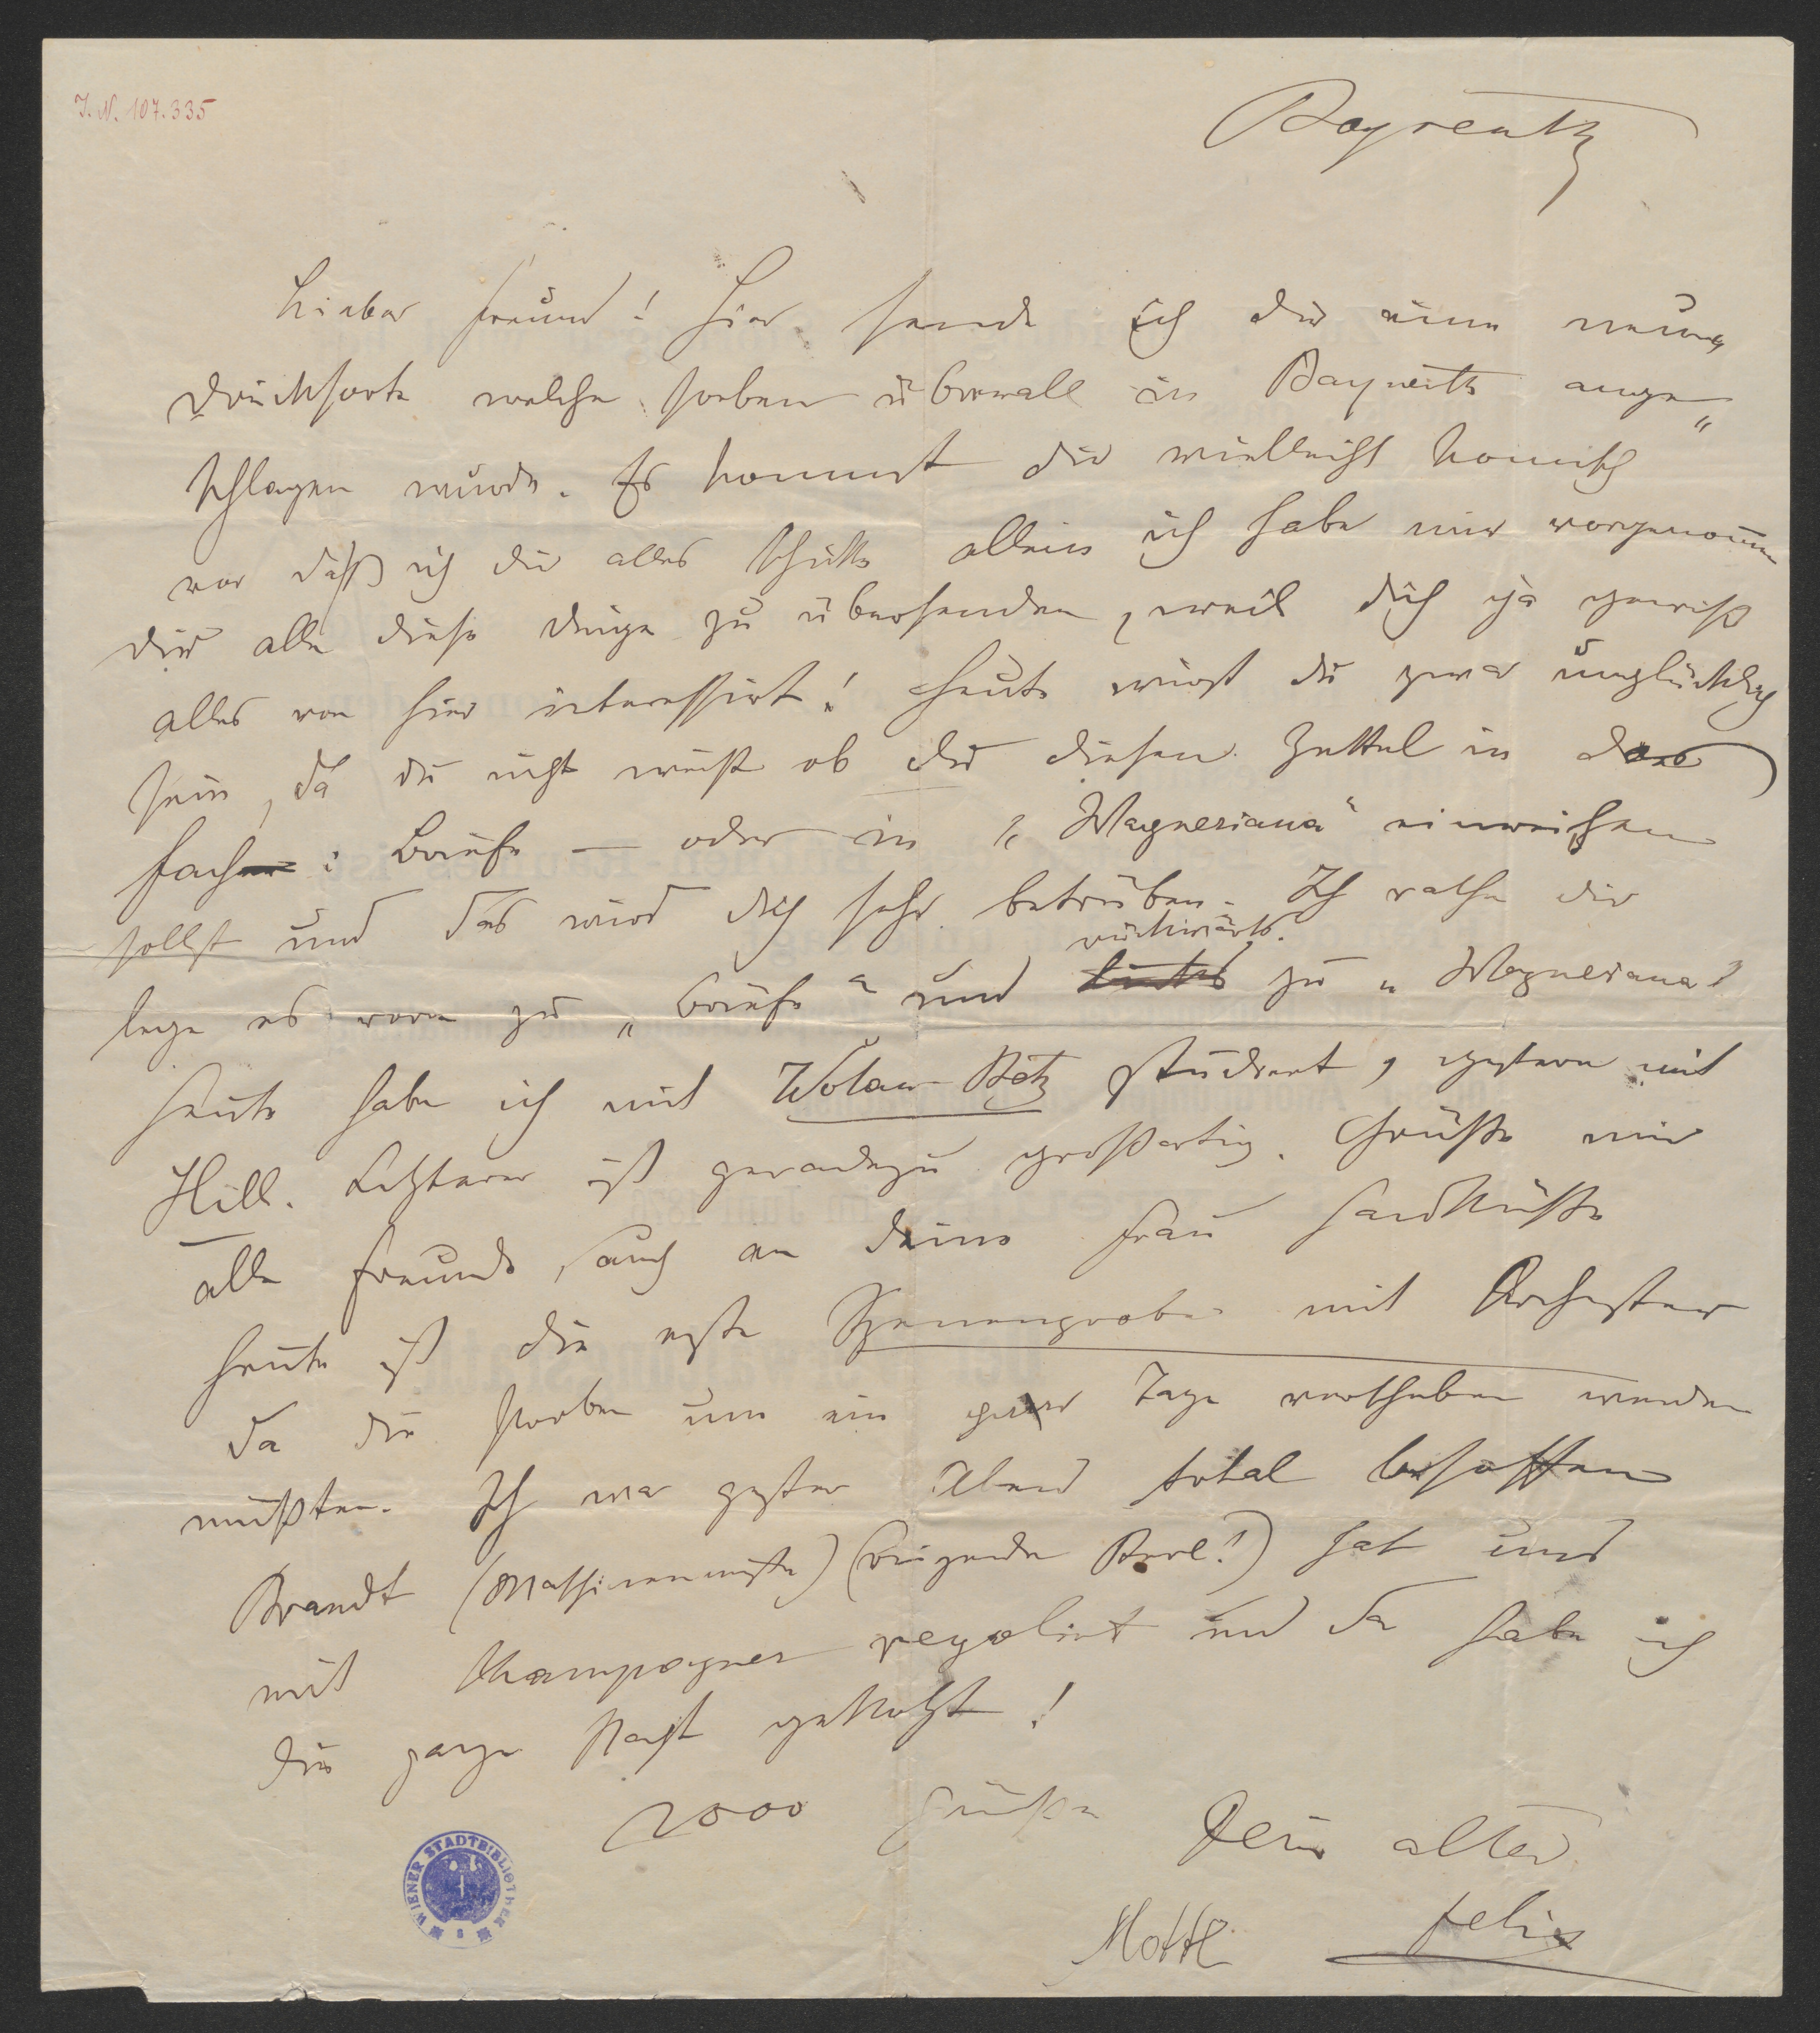 J. N. 107.335
Bayreuth
Lieber Freund! Hier sende ich dir eine neue
Drucksorte welche soeben überall in Bayreuth ange„
schlagen wurde. Es kommt dir vielleicht komisch
vor daß ich dir alles schicke allein ich habe mir vorgenommen
dir alle diese Dinge zu übersenden, weil dich ja gewiß
alles von hier interessirt! Heute wirst du zwar unglücklich
sein, da du nicht weißt ob du diesen Zettel in das
Fach: Briefe — oder in „Wagneriana" einreihen
sollst und das wird dich sehr betrüben. Ich rathe dir
rückwärts.
lege es vorn zu „Briefe" und links zu „Wagneriana"
Heute habe ich mit Wotan-Betz studiert, gestern mit
Hill. Letzterer ist geradezu großartig. Grüße mir
alle Freunde, auch an deine Frau Handküsse
Heute ist die erste Szenenprobe mit Orchester
da die Proben um ein paar Tage verschoben werden
mußten. Ich war gestern Abend total besoffen
Brandt (Maschinenmeister) (reizender Kerl!) hat uns
mit Champagner regalirt und da habe ich
die ganze Nacht gekotzt!
2000 Grüße Dein alter
Mottl Felix
WIENER STADTBIBLIOTHEK